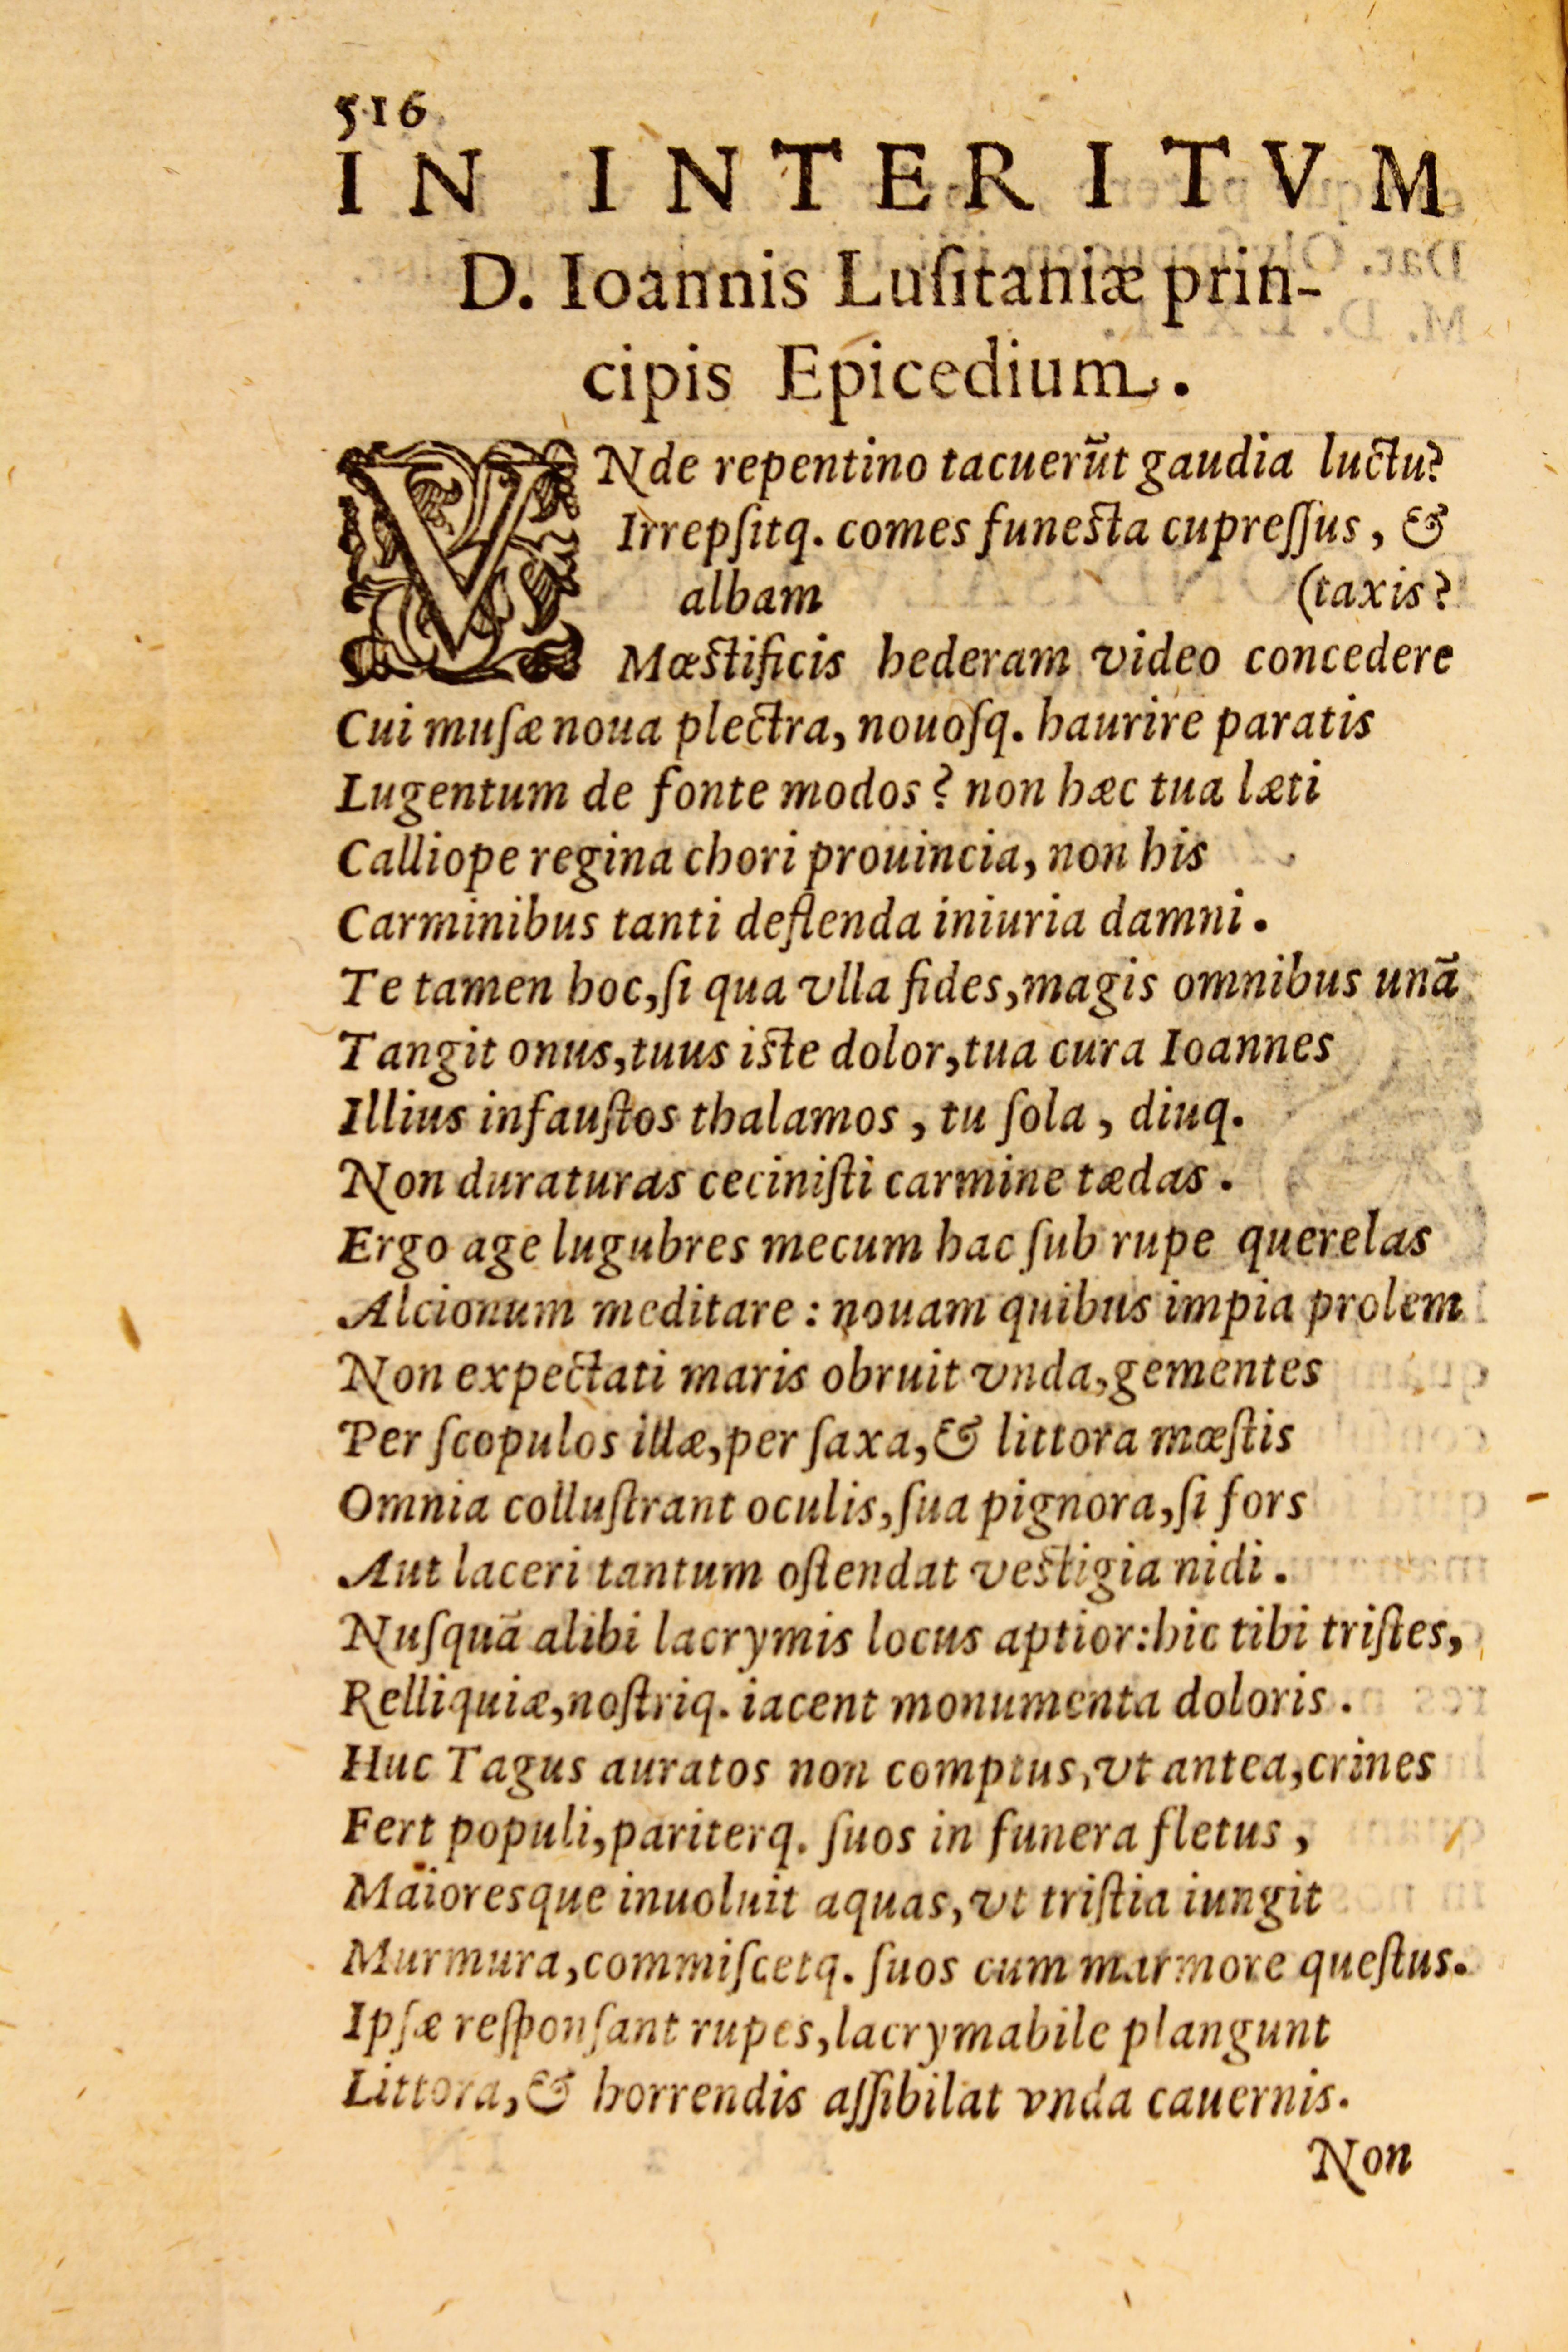 516
IN INTERITVM
D. Ioannis Luſitaniæ prin-
cipis Epicedium.
VNde repentino tacuerūt gaudia luctu?
Irrepſitq. comes funesta cupreſſus, &
albam (taxis?
Mœstificis hederam video concedere
Cui muſæ noua plectra, nouoſq. haurire paratis
Lugentum de fonte modos? non hæc tua læti
Calliope regina chori prouincia, non his
Carminibus tanti deflenda iniuria damni.
Te tamen hoc, ſi qua vlla fides, magis omnibus unā
Tangit onus, tuus iste dolor, tua cura Ioannes
Illius infauſtos thalamos, tu ſola, diuq.
Non duraturas ceciniſti carmine tædas.
Ergo age lugubres mecum hac ſub rupe querelas
Alcionum meditare: nouam quibus impia prolem
Non expectati maris obruit vnda, gementes
Per ſcopulos illæ, per ſaxa, & littora mœſtis
Omnia colluſtrant oculis, ſua pignora, ſi fors
Aut laceri tantum oſtendat vestigia nidi.
Nuſquā alibi lacrymis locus aptior: hic tibi triſtes,
Relliquiæ, noſtriq. iacent monumenta doloris.
Huc Tagus auratos non comptus, vt antea, crines
Fert populi, pariterq. ſuos in funera fletus,
Maioresque inuoluit aquas, vt triſtia iungit
Murmura, commiſcetq. ſuos cum marmore queſtus.
Ipſæ reſponſant rupes, lacrymabile plangunt
Littora, & horrendis aſſibilat vnda cauernis.
Non